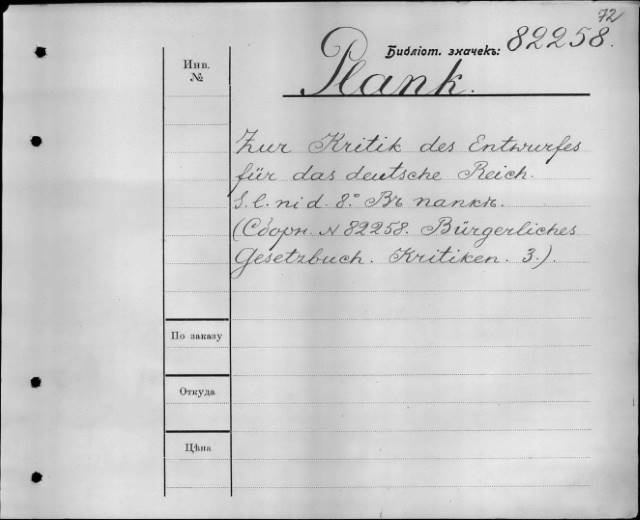 72
Библіот. значекъ: 82258.
Plank.
Инв.
№
Zur Kritik des Entwurfes
für das deutsche Reich.
S. l. ni d. 8.° Въ папкѣ.
(Сборн. № 82258. Bürgerliches
Gesetzbuch. Kritiken. 3.).
По заказу
Откуда
Цѣна